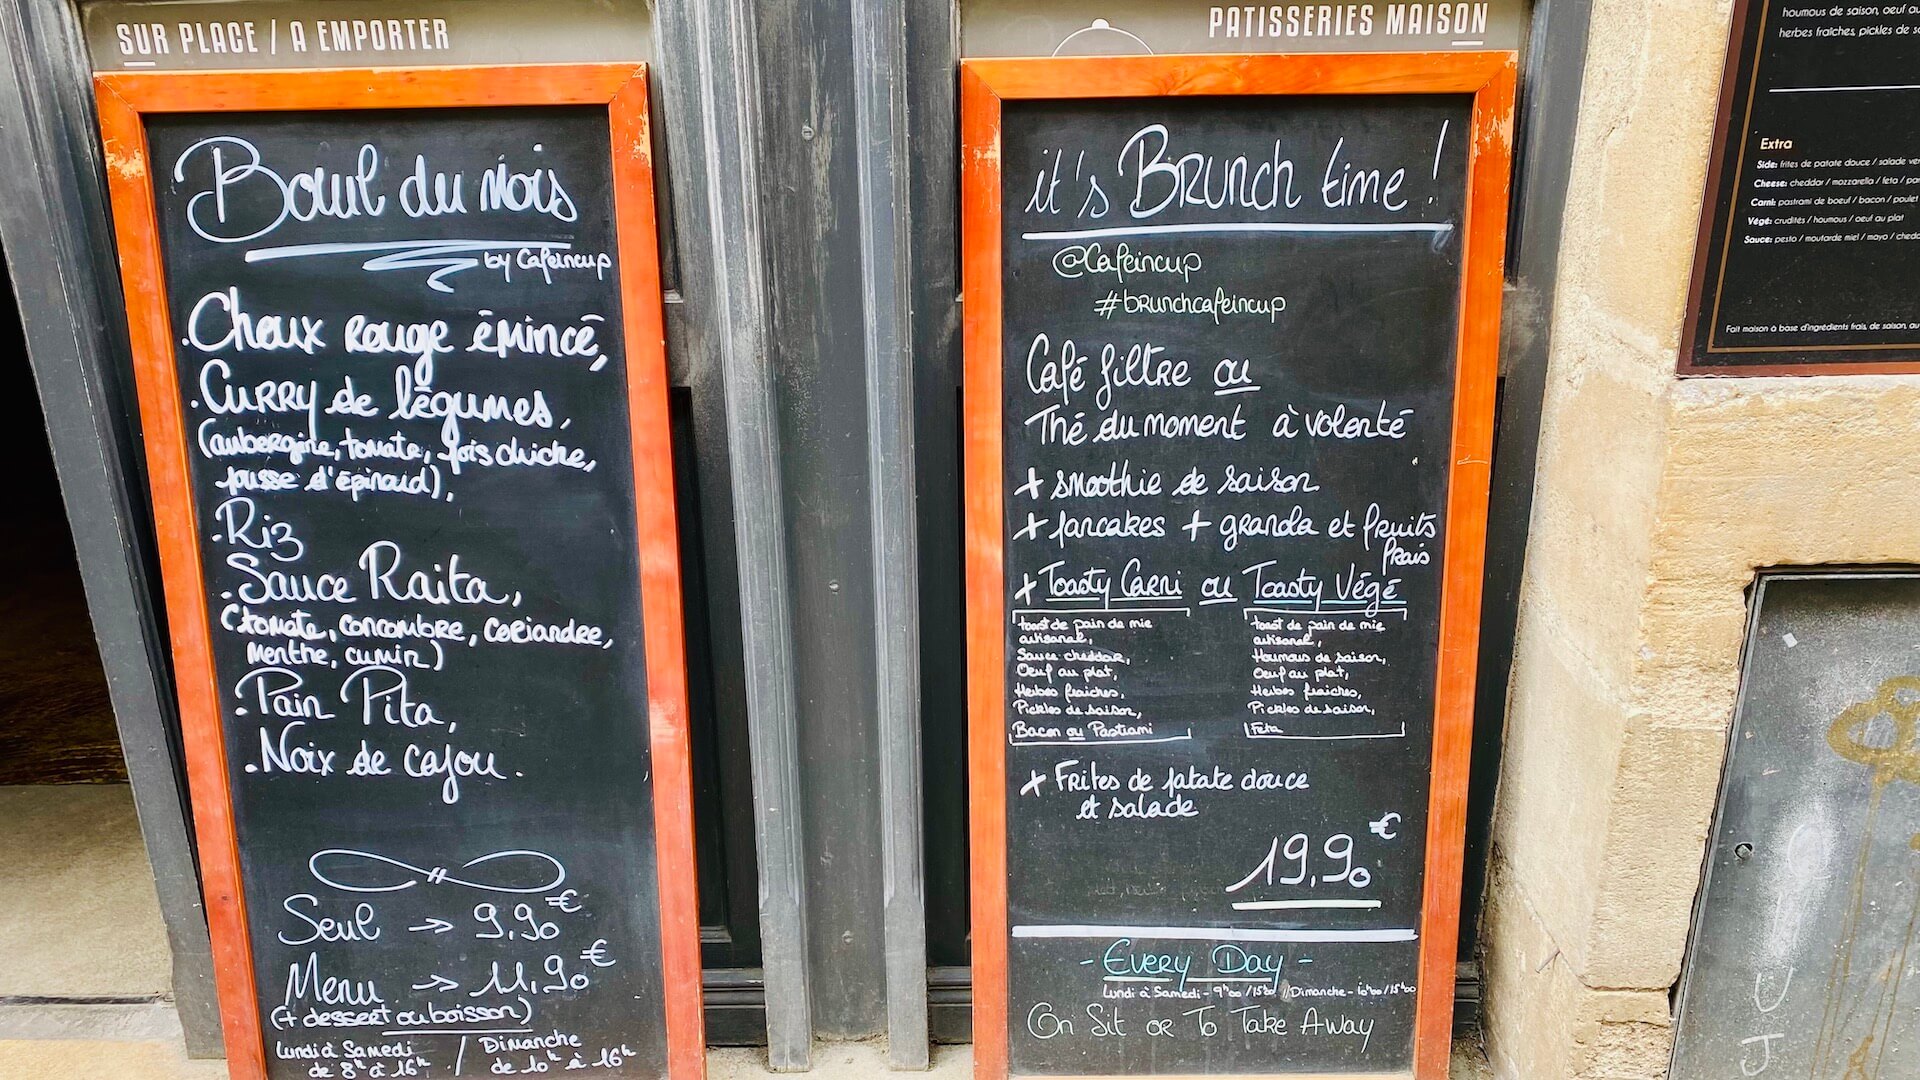 SUR PLACE / A EMPORTER
Bowl du Mois
by Cafeincup
. Choux rouge émincé,
. Curry de légumes,
(aubergine, tomate, pois chiche,
pousse d'épinard),
. Riz
. Sauce Raita,
(tomate, concombre, coriandre,
menthe, cumin)
. Pain Pita,
. Noix de cajou.
Seul → 9,90€
Menu → 11,90€
(+ dessert ou boisson)
Lundi à Samedi
de 8h à 16h
/ Dimanche
de 10h à 16h
PATISSERIES MAISON
it's BRUNCH time !
@Cafeincup
#brunchcafeincup
Café filtre ou
Thé du moment à volonté
+ smoothie de saison
+ pancakes + granola et fruits
frais
+ Toasty Carni ou Toasty Végé
toast de pain de mie
artisanal,
Sauce cheddar,
Oeuf au plat,
Herbes fraiches,
Pickles de saison,
Bacon ou Pastrami
toast de pain de mie
artisanal,
Houmous de saison,
Oeuf au plat,
Herbes fraiches,
Pickles de saison,
Feta
+ Frites de patate douce
et salade
19,90€
- Every Day -
Lundi à Samedi - 9h00 / 15h00 // Dimanche - 10h00 / 15h00
On Sit or To Take Away
houmous de saison, oeuf au
herbes fraîches, pickles de
Extra
Side: frites de patate douce / salade
Cheese: cheddar / mozzarella / feta /
Carni: pastrami de boeuf / bacon / poulet
Végé: crudités / houmous / oeuf au plat
Sauce: pesto / moutarde miel / mayo /
Fait maison à base d'ingrédients frais, de saison,